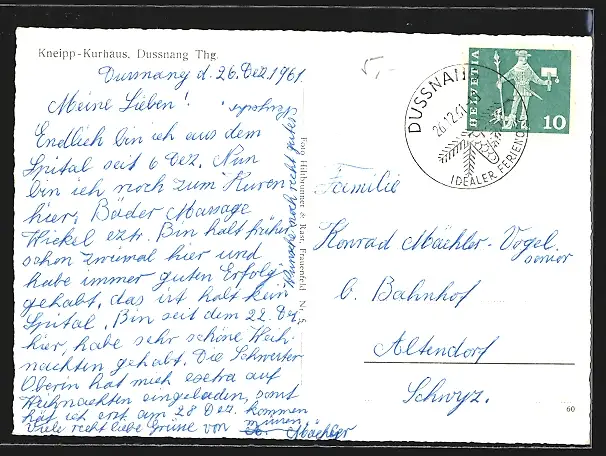 Kneipp-Kurhaus. Dussnang Thg.
Dussnang d. 26. Dez 1961.
Meine Lieben!
Endlich bin ich aus dem
Spital seit 6 Dez. Nun
bin ich noch zum Kuren
hier, Bäder Massage
Wickel eztr. Bin halt früher
schon zweimal hier und
habe immer guten Erfolg
gehabt, das ist halt kein
Spital. Bin seit dem 22. Dez.
hier, habe sehr schöne Weih-
nachten gehabt. Die Schwester
Oberin hat mich extra auf
Weihnachten eingeladen, sonst
hät ich erst am 28 Dez. kommen
müssen
Viele recht liebe Grüsse von Mächler
Wünsche auch recht gutes
Neujahr
Foto Hiltbrunner & Rast, Frauenfeld Nr. 5
5,-
HELVETIA
10
DUSSNANG
26.12.61
IDEALER FERIENO
Familie
Konrad Mächler-Vogel.
senior
b. Bahnhof
Altendorf
Schwyz.
60